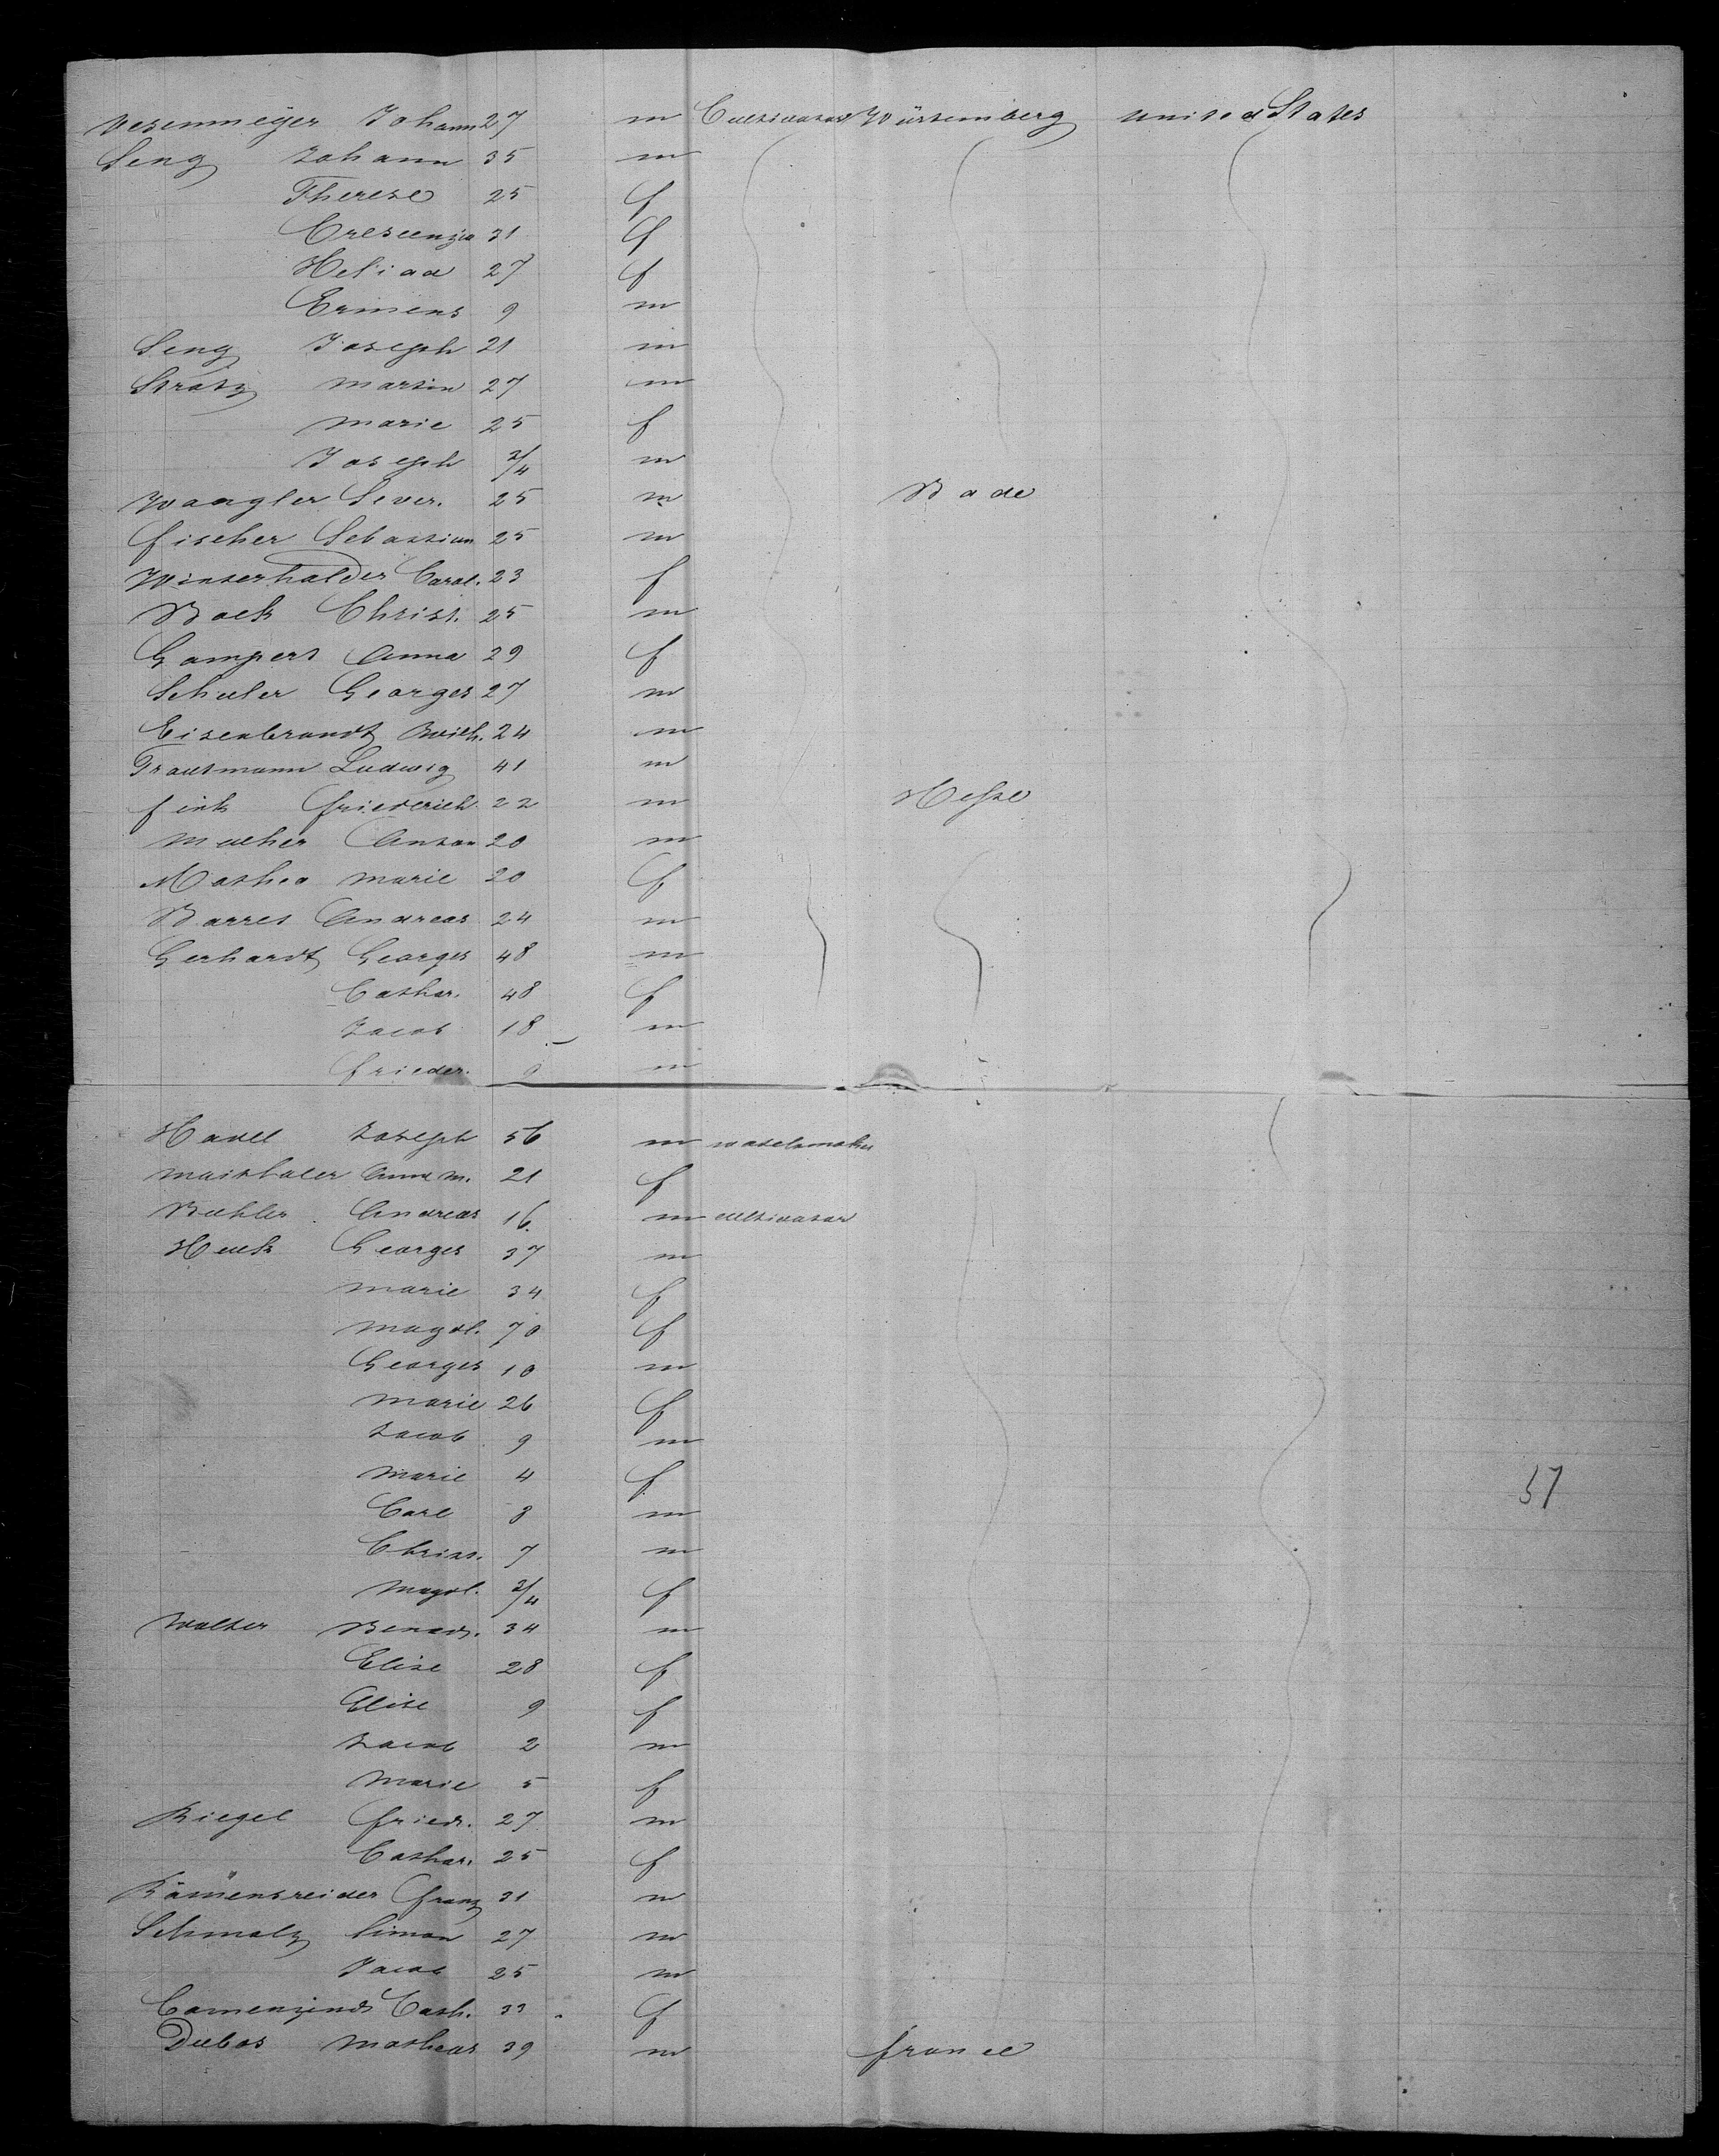 Vesenmeÿer Johann 27 m Cultivator Würtemberg united States
Seng Johann 35 m
Therese 25 f
Crescenzia 31 f
27 f
9 m
Seng Joseph 21 m
Stratz Martin 27 m
Marie 25 f
Joseph 3/4 m
Wangler Sever. 25 m Bade
fischer Sebastian 25 m
Winterhalder Carol. 23 f
Bock Christ. 25 m
Gampert Anna 29 f
Schuler Georges 27 m
Eisenbrandt Wilh. 24 m
Trautmann Ludwig 41 m
fink friederich 22 m Hesse
Anton 20 m
Mathea Marie 20 f
Barret Andreas 24 m
Gerhardt Georges 48 m
Cathar. 48 f
Jacob 18 m
frieder. 9 m
Havel Joseph 56 m watchmaker
Maisthaler Anna M. 21 f
Buhler Andreas 16 m cultivator
Huck Georges 37 m
Marie 34 f
Magdl. 70 f
Georges 10 m
Marie 26 f
Jacob 9 m
Marie 4 f
Carl 8 m
Christ. 7 m
Magdl. 3/4 f
57
Walter 34 m
Elise 28 f
Elise 9 f
Jacob 2 m
Marie 5 f
Riegel friedr. 27 m
Cathar. 25 f
franz 31 m
Schmalz Simon 27 m
Jacob 25 m
Camenzind Cath. 33 f
Dubos Matheus 39 m france